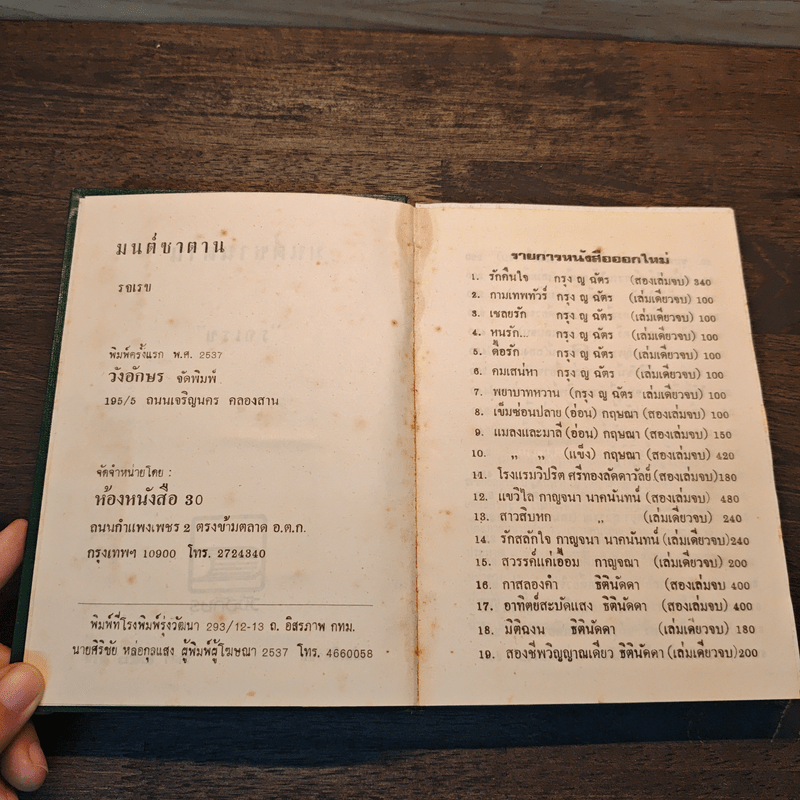 มนต์ซาตาน
รจเรข
พิมพ์ครั้งแรก พ.ศ. 2537
วังอักษร จัดพิมพ์
195/5 ถนนเจริญนคร คลองสาน
จัดจำหน่ายโดย :
ห้องหนังสือ 30
ถนนกำแพงเพชร 2 ตรงข้ามตลาด อ.ต.ก.
กรุงเทพฯ 10900 โทร. 2724340
พิมพ์ที่โรงพิมพ์รุ่งวัฒนา 293/12-13 ถ. อิสรภาพ กทม.
นายศิริชัย หล่อกุลแสง ผู้พิมพ์ผู้โฆษณา 2537 โทร. 4660058
รายการหนังสือออกใหม่
1. รักคืนใจ กรุง ญ ฉัตร (สองเล่มจบ) 340
2. กามเทพทัวร์ กรุง ญ ฉัตร (เล่มเดียวจบ) 100
3. เชลยรัก กรุง ญ ฉัตร (เล่มเดียวจบ) 100
4. หนูรัก... กรุง ญ ฉัตร (เล่มเดียวจบ) 100
5. ดื้อรัก กรุง ญ ฉัตร (เล่มเดียวจบ) 100
6. คมเสน่หา กรุง ญ ฉัตร (เล่มเดียวจบ) 100
7. พยาบาทหวาน (กรุง ญ ฉัตร เล่มเดียวจบ) 100
8. เข็มซ่อนปลาย (อ่อน) กฤษณา (สองเล่มจบ) 100
9. แมลงและมาลี (อ่อน) กฤษณา (สองเล่มจบ) 150
10. ,, ,, (แข็ง) กฤษณา (สองเล่มจบ) 420
11. โรงแรมวิปริต ศรีทองลัดดาวัลย์ (สองเล่มจบ) 180
12. แขวิไล กาญจนา นาคนันทน์ (สองเล่มจบ) 480
13. สาวสิบหก ,, (เล่มเดียวจบ) 240
14. รักสลักใจ กาญจนา นาคนันทน์ (เล่มเดียวจบ) 240
15. สวรรค์แค่เอื้อม กาญจณา (เล่มเดียวจบ) 200
16. กาสลองคำ ธิตินัดดา (สองเล่มจบ 400
17. อาทิตย์สะบัดแสง ธิตินัดดา (สองเล่มจบ) 400
18. มิติฉงน ธิตินัดดา (เล่มเดียวจบ) 180
19. สองชีพวิญญาณเดียว ธิตินัดดา (เล่มเดียวจบ) 200